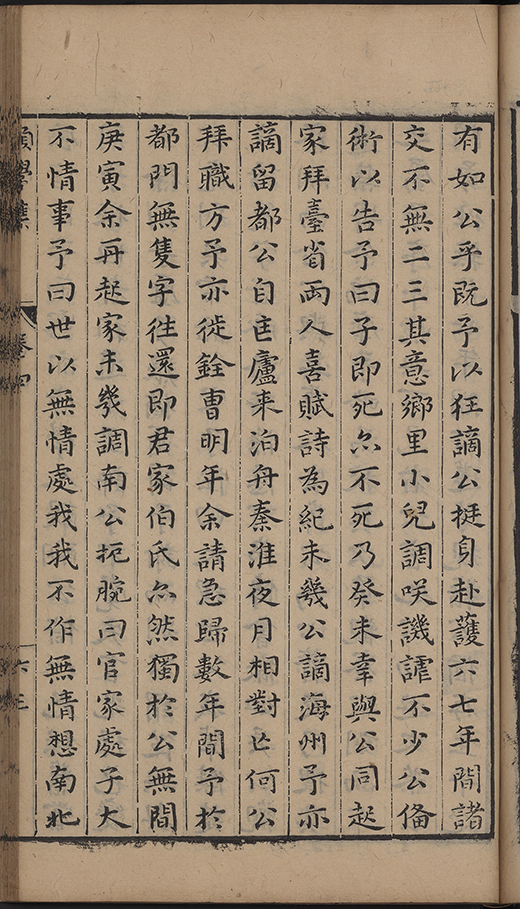 有如公乎既予以狂謫公挺身赴護六七年間諸
交不無二三其意鄉里小兒調咲譏謔不少公偹
術以告予曰子即死尒不死乃癸未幸與公同起
家拜臺省兩人喜賦詩為紀未幾公謫海州予亦
謫留都公自匡廬来泊舟秦淮夜月相對亡何公
拜職方予亦徙銓曹明年余請急歸數年間予於
都門無隻字徃還即君家伯氏尒然獨於公無間
庚寅余再起家未幾調南公扼腕曰官家處子大
不情事予曰世以無情處我我不作無情想南北
願學集
卷四